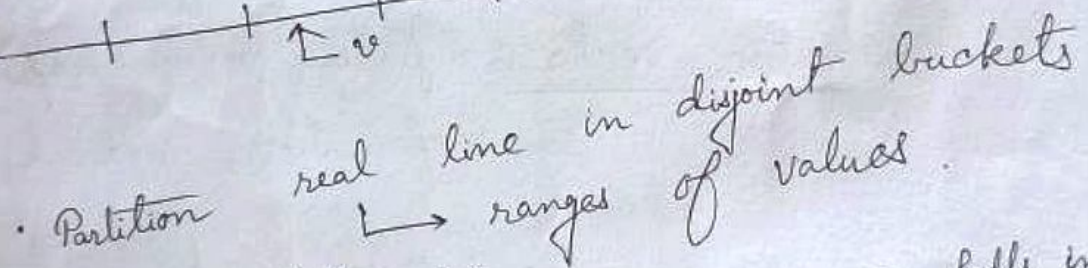 v
· Partition real line in disjoint buckets
↳ ranges of values.